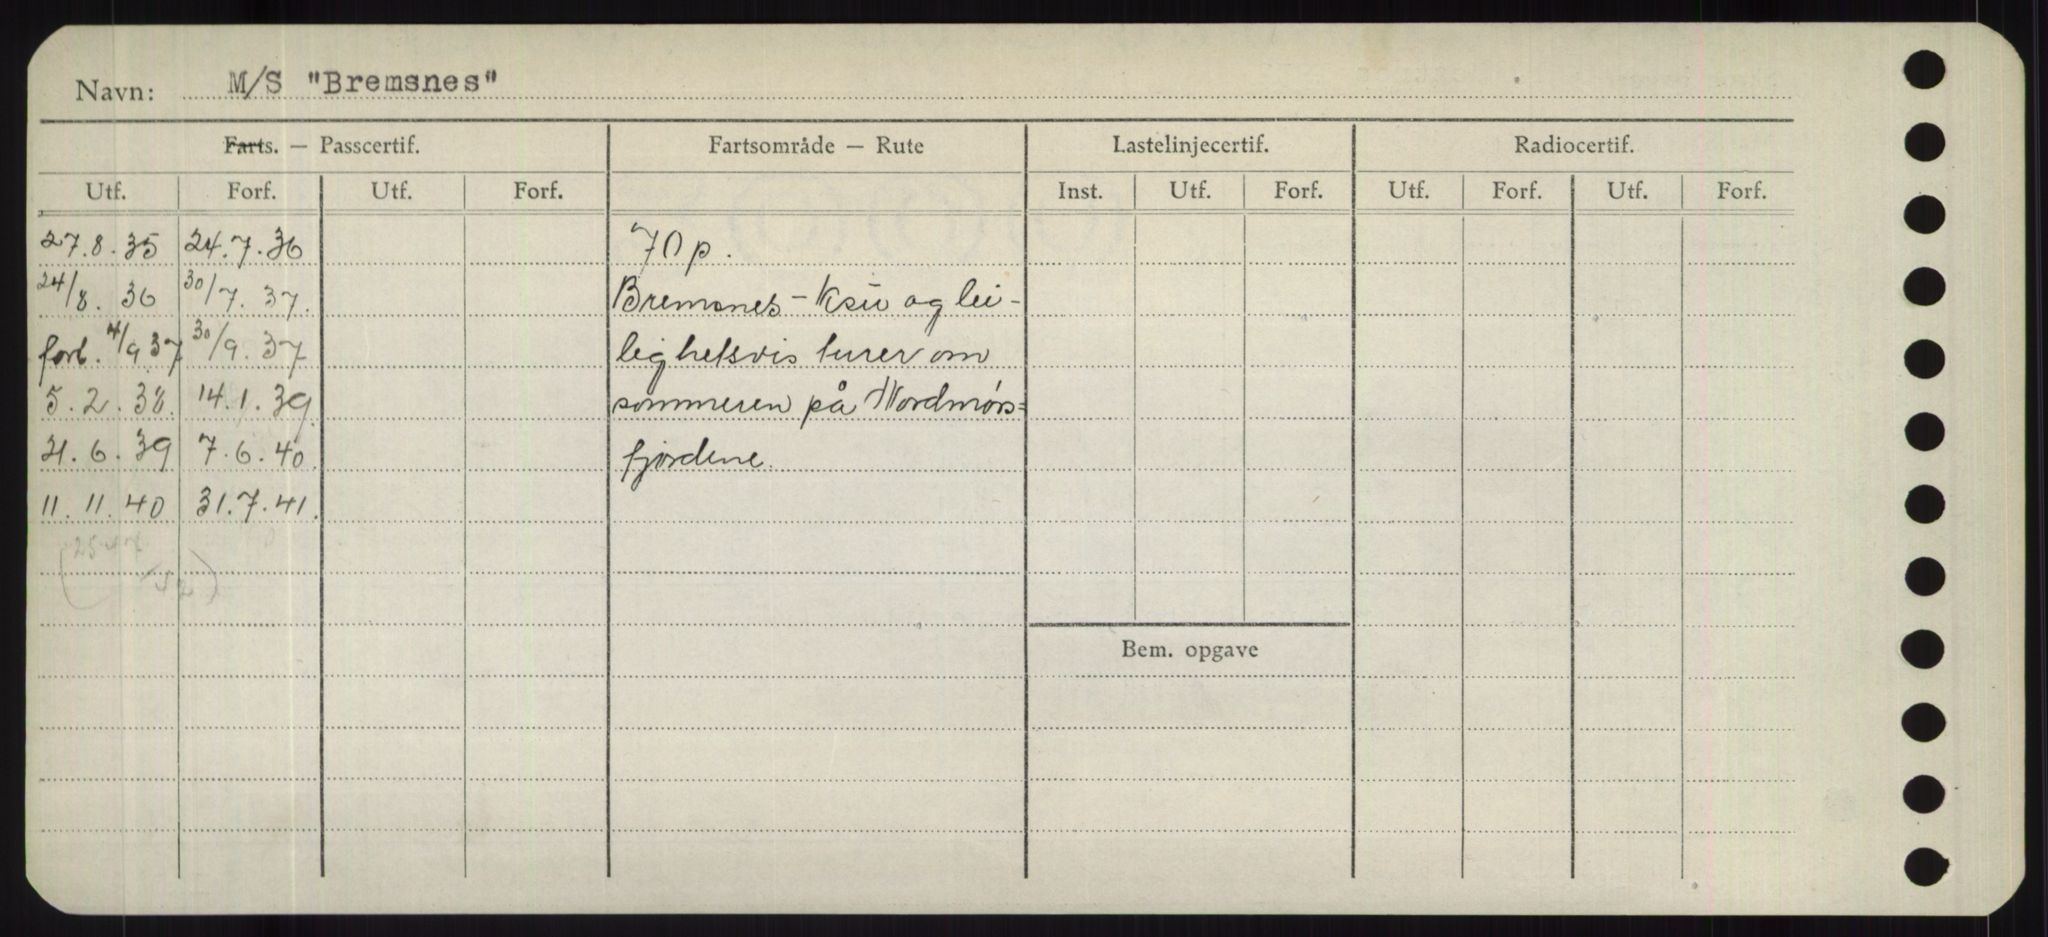 Navn: M/S "Bremsnes"
Farts. — Passcertif. Fartsområde — Rute Lastelinjecertif. Radiocertif.
Utf. Forf. Utf. Forf. Inst. Utf. Forf. Utf. Forf. Utf. Forf.
27.8.35 24.7.36 70 p.
24/8. 36 30/7. 37. Bremsnes - Ksu og lei-
forl. 4/9 37 30/9. 37 lighetsvis turer om
5.2.38. 14.1.39. sommeren på Nordmørs=
21.6.39 7.6.40. fjordene.
11.11.40 31.7.41.
Bem. opgave